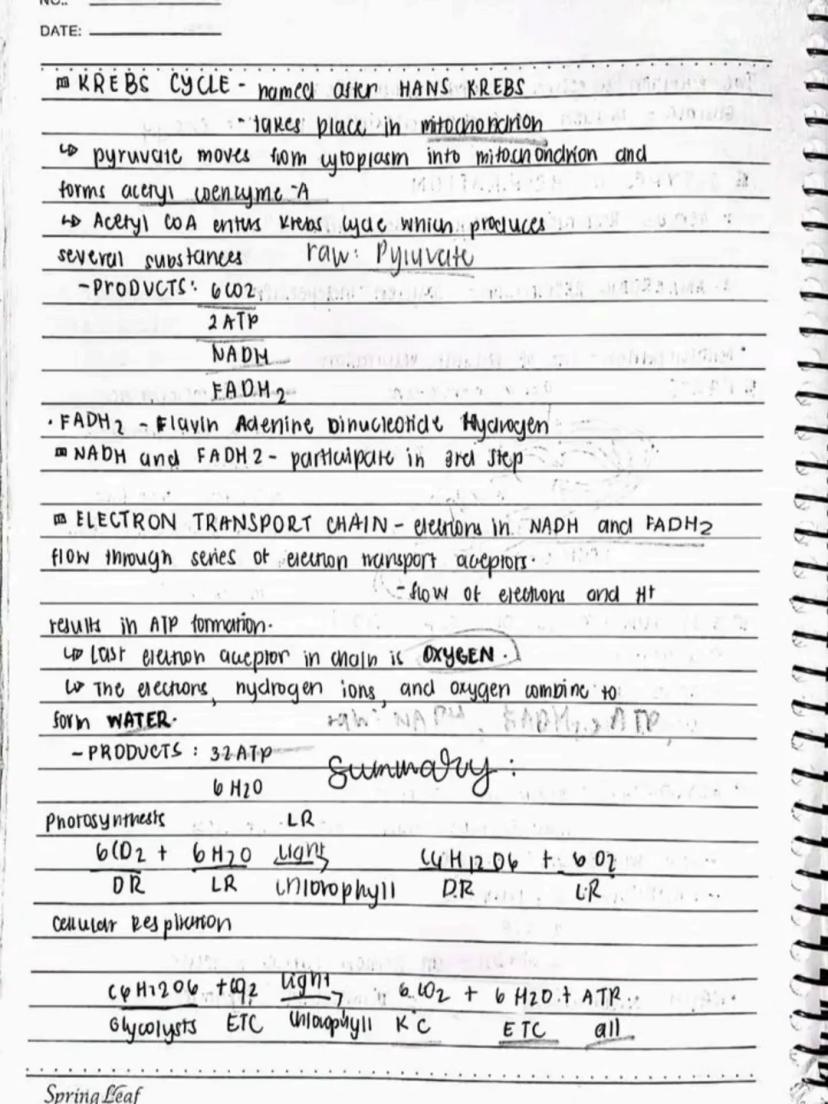 NO.:
DATE:
KREBS CYCLE - named after HANS KREBS
- takes place in mitochondrion
↳ pyruvate moves from cytoplasm into mitochondrion and
forms acetyl coenzyme -A
↳ Acetyl CoA enters Krebs cycle which produces
several substances raw: Pyruvate
- PRODUCTS: 6CO2
2 ATP
NADH
FADH2
• FADH2 - Flavin Adenine Dinucleotide Hydrogen
NADH and FADH2 - participate in 3rd step
ELECTRON TRANSPORT CHAIN - electrons in NADH and FADH2
flow through series of electron transport aceptors.
- flow of electrons and H+
results in ATP formation.
↳ Last electron aceptor in chain is OXYGEN.
↳ The electrons, hydrogen ions, and oxygen combine to
form WATER.
- PRODUCTS: 32 ATP
6 H2O
Summary:
Photosynthesis LR
6CO2 + 6H2O Light → C6H12O6 + 6O2
DR LR Chlorophyll D.R LR
Cellular Respiration
C6H12O6 + Light → 6CO2 + 6 H2O + ATP.
Glycolysis ETC Chlorophyll KC ETC all
Spring Leaf